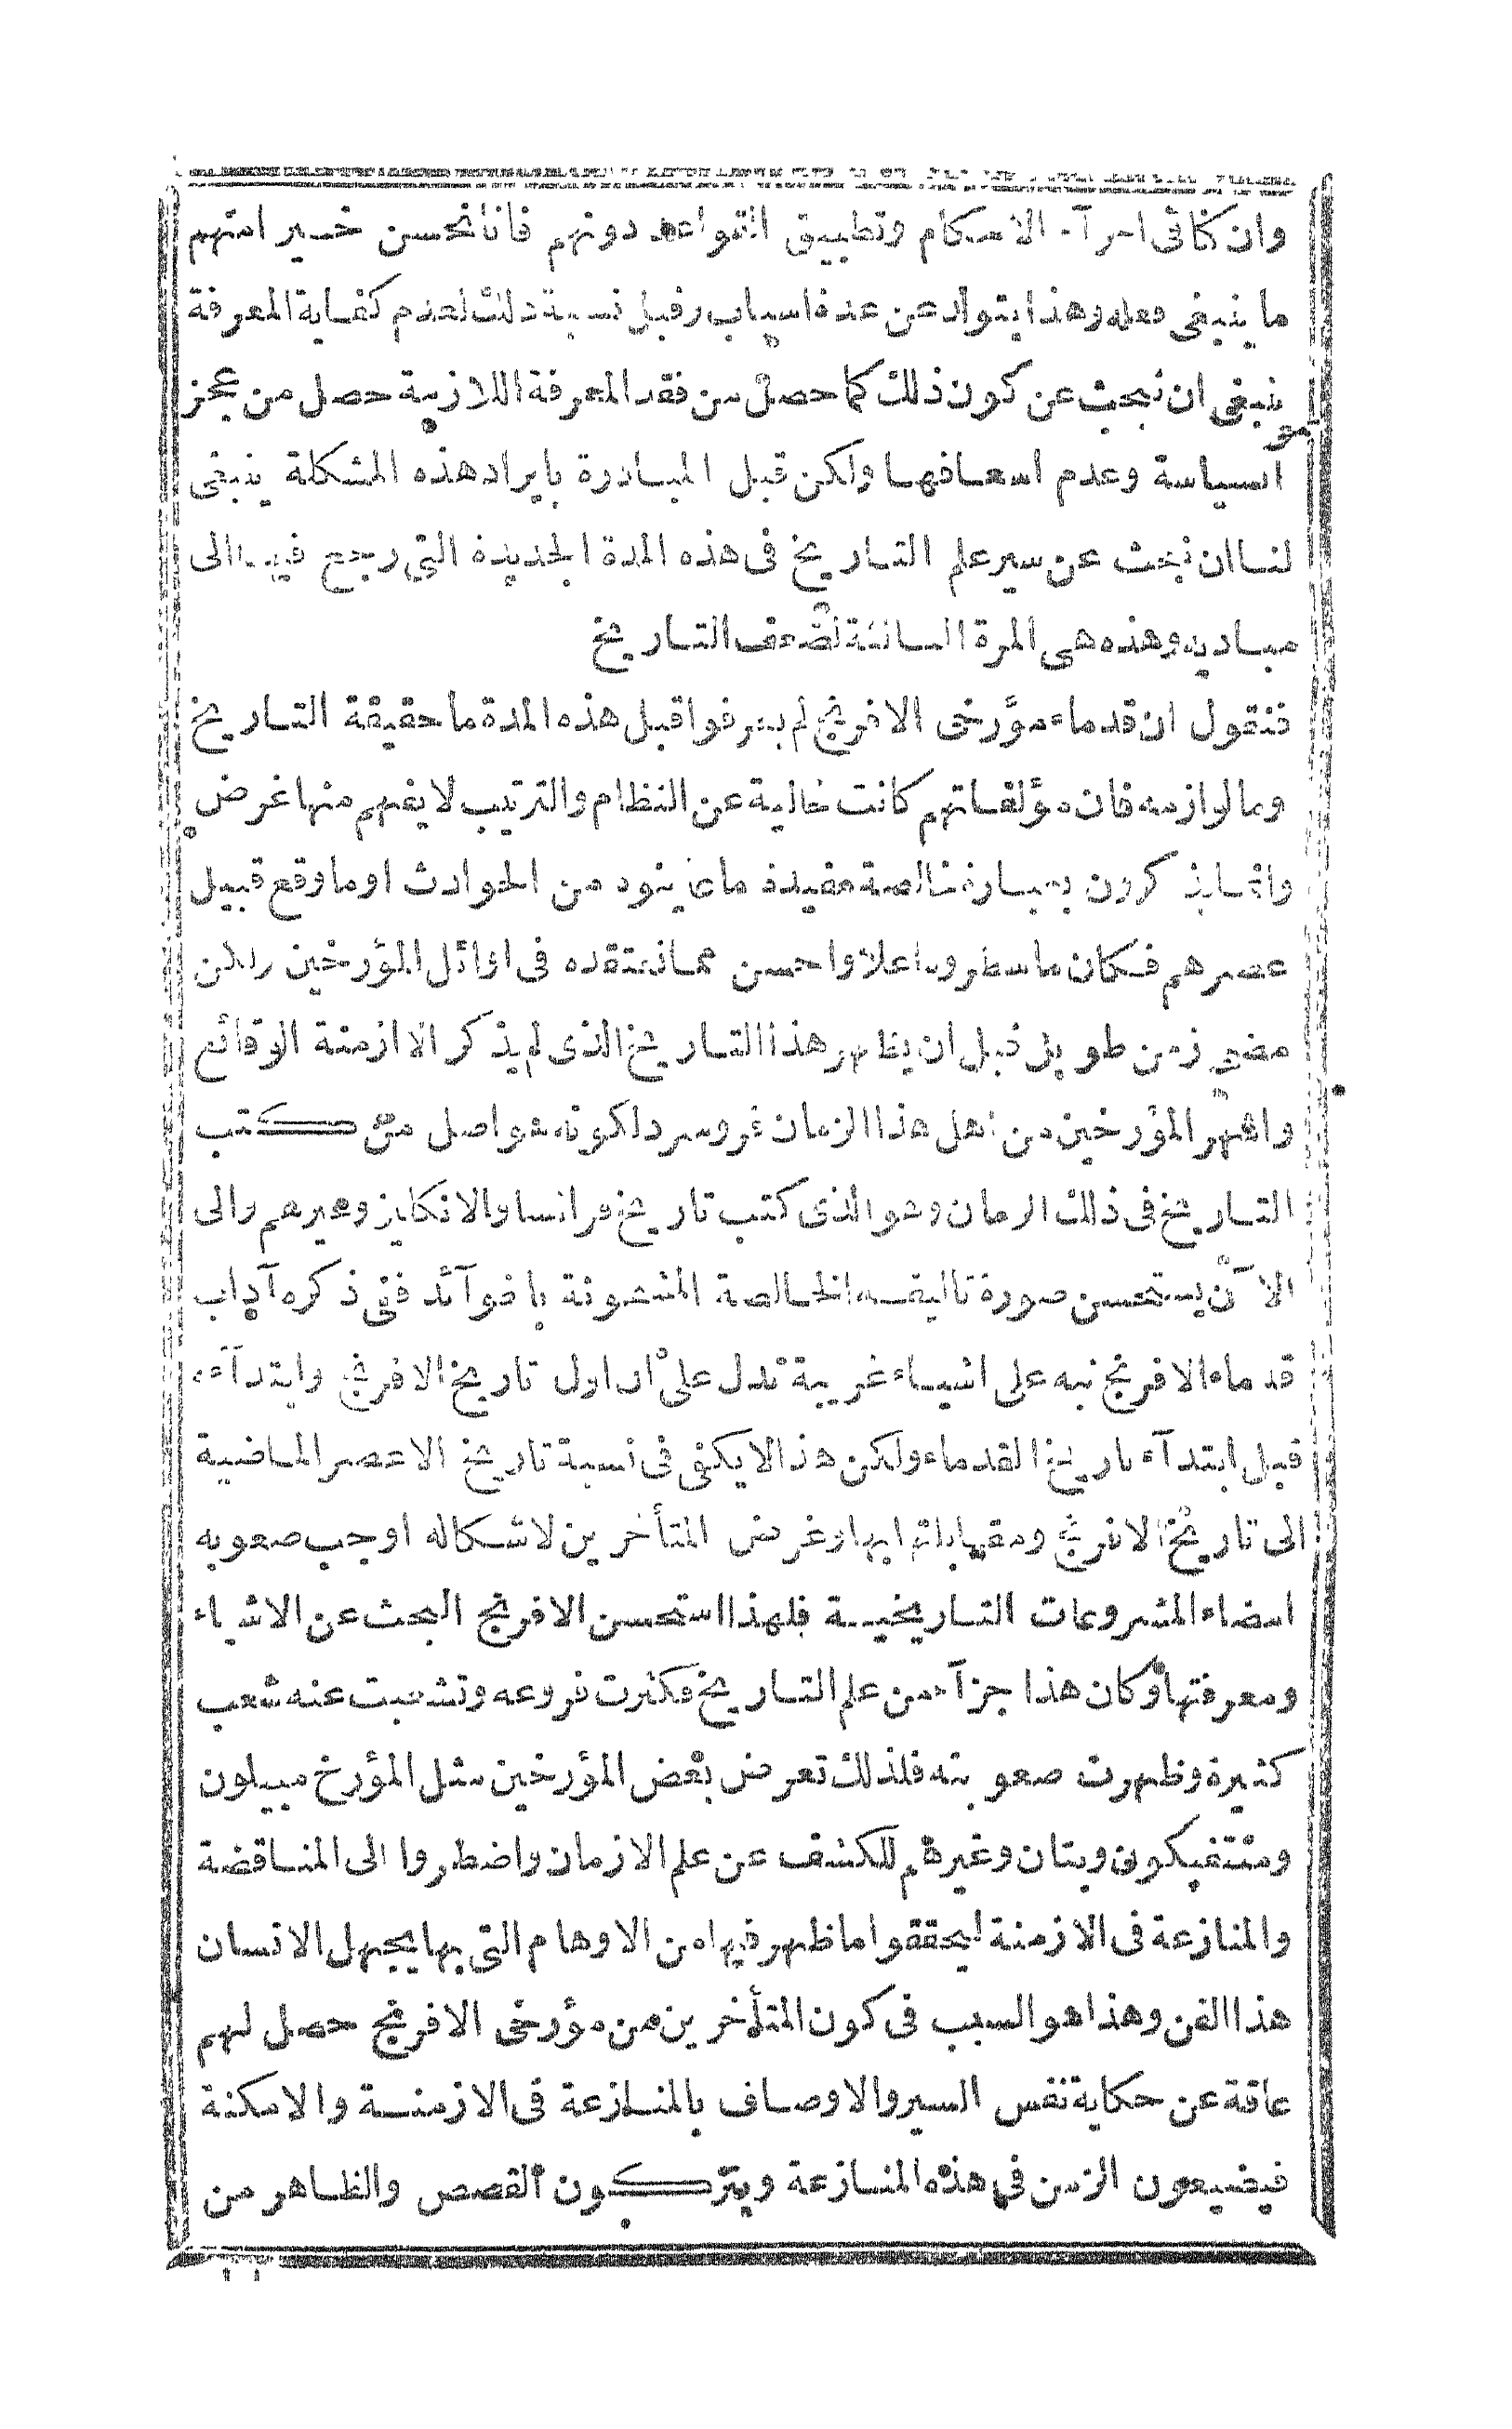 وان كنا فى اجرآء الاحكام وتطبيق القواعد دونهم فانا نحسن خير امتهم
ما ينبغى فعله وهذا يتولد عن عدة اسباب وقبل نسبة ذلك لعدم كفاية المعرفة
ينبغى ان نبحث عن كون ذلك كما حصل من فقد المعرفة اللازمة حصل من عجز
السياسة وعدم اسعافها ولكن قبل المبادرة بايراد هذه المشكلة ينبغى
لنا ان نبحث عن سير علم التاريخ فى هذه المدة الجديدة التى رجع فيها الى
مباديه وهذه هى المرة الثانية لضعف التاريخ
فنقول ان قدماء مؤرخى الافرنج لم يعرفوا قبل هذه المدة ما حقيقة التاريخ
وما لوازمه فان مؤلفاتهم كانت خالية عن النظام والترتيب لا يفهم منها غرض
وانما يذكرون بعبارة خالصة مفيدة ما عاينوه من الحوادث او ما وقع قبيل
عصرهم فكان ما سطروه اعلا واحسن مما نعتقده فى اوائل المؤرخين ولكن
مضى زمن طويل قبل ان يظهر هذا التاريخ الذى لم يذكر الا ازمنة الوقائع
واشهر المؤرخين من اهل هذا الزمان فروسرد لكونه هو اصل من كتب
التاريخ فى ذلك الزمان وهو الذى كتب تاريخ فرانسا والانكليز وغيرهم والى
الاآن يستحسن صورة تاليفه الخالصة المشحونة بالفوآئد ففى ذكره آداب
قدماء الافرنج نبه على اشياء غريبة تدل على ان اول تاريخ الافرنج وابتدآءه
قبل ابتدآء تاريخ القدماء ولكن هذا لا يكفى فى نسبة تاريخ الاعصر الماضية
الى تاريخ الافرنج ومقابلتها بها وغرض المتأخرين لاشكاله اوجب صعوبه
امضاء المشروعات التاريخية فلهذا استحسن الافرنج البحث عن الاشياء
ومعرفتها وكان هذا جزآء من علم التاريخ فكثرت فروعه وتشعبت عنه شعب
كثيرة وظهرت صعوبته فلذلك تعرض بعض المؤرخين مثل المؤرخ مبيلون
ومنتفيكون وبتان وغيرهم للكشف عن علم الازمان واضطروا الى المناقضة
والمنازعة فى الازمنة ليحققوا ما ظهر فيها من الاوهام التى بها يجهل الانسان
هذا الفن وهذا هو السبب فى كون المتأخرين من مؤرخى الافرنج حصل لهم
عاقة عن حكاية نفس السير والاوصاف بالمنازعة فى الازمنة والامكنة
فيضيعون الزمن فى هذه المنازعة ويتركون القصص والظاهر من